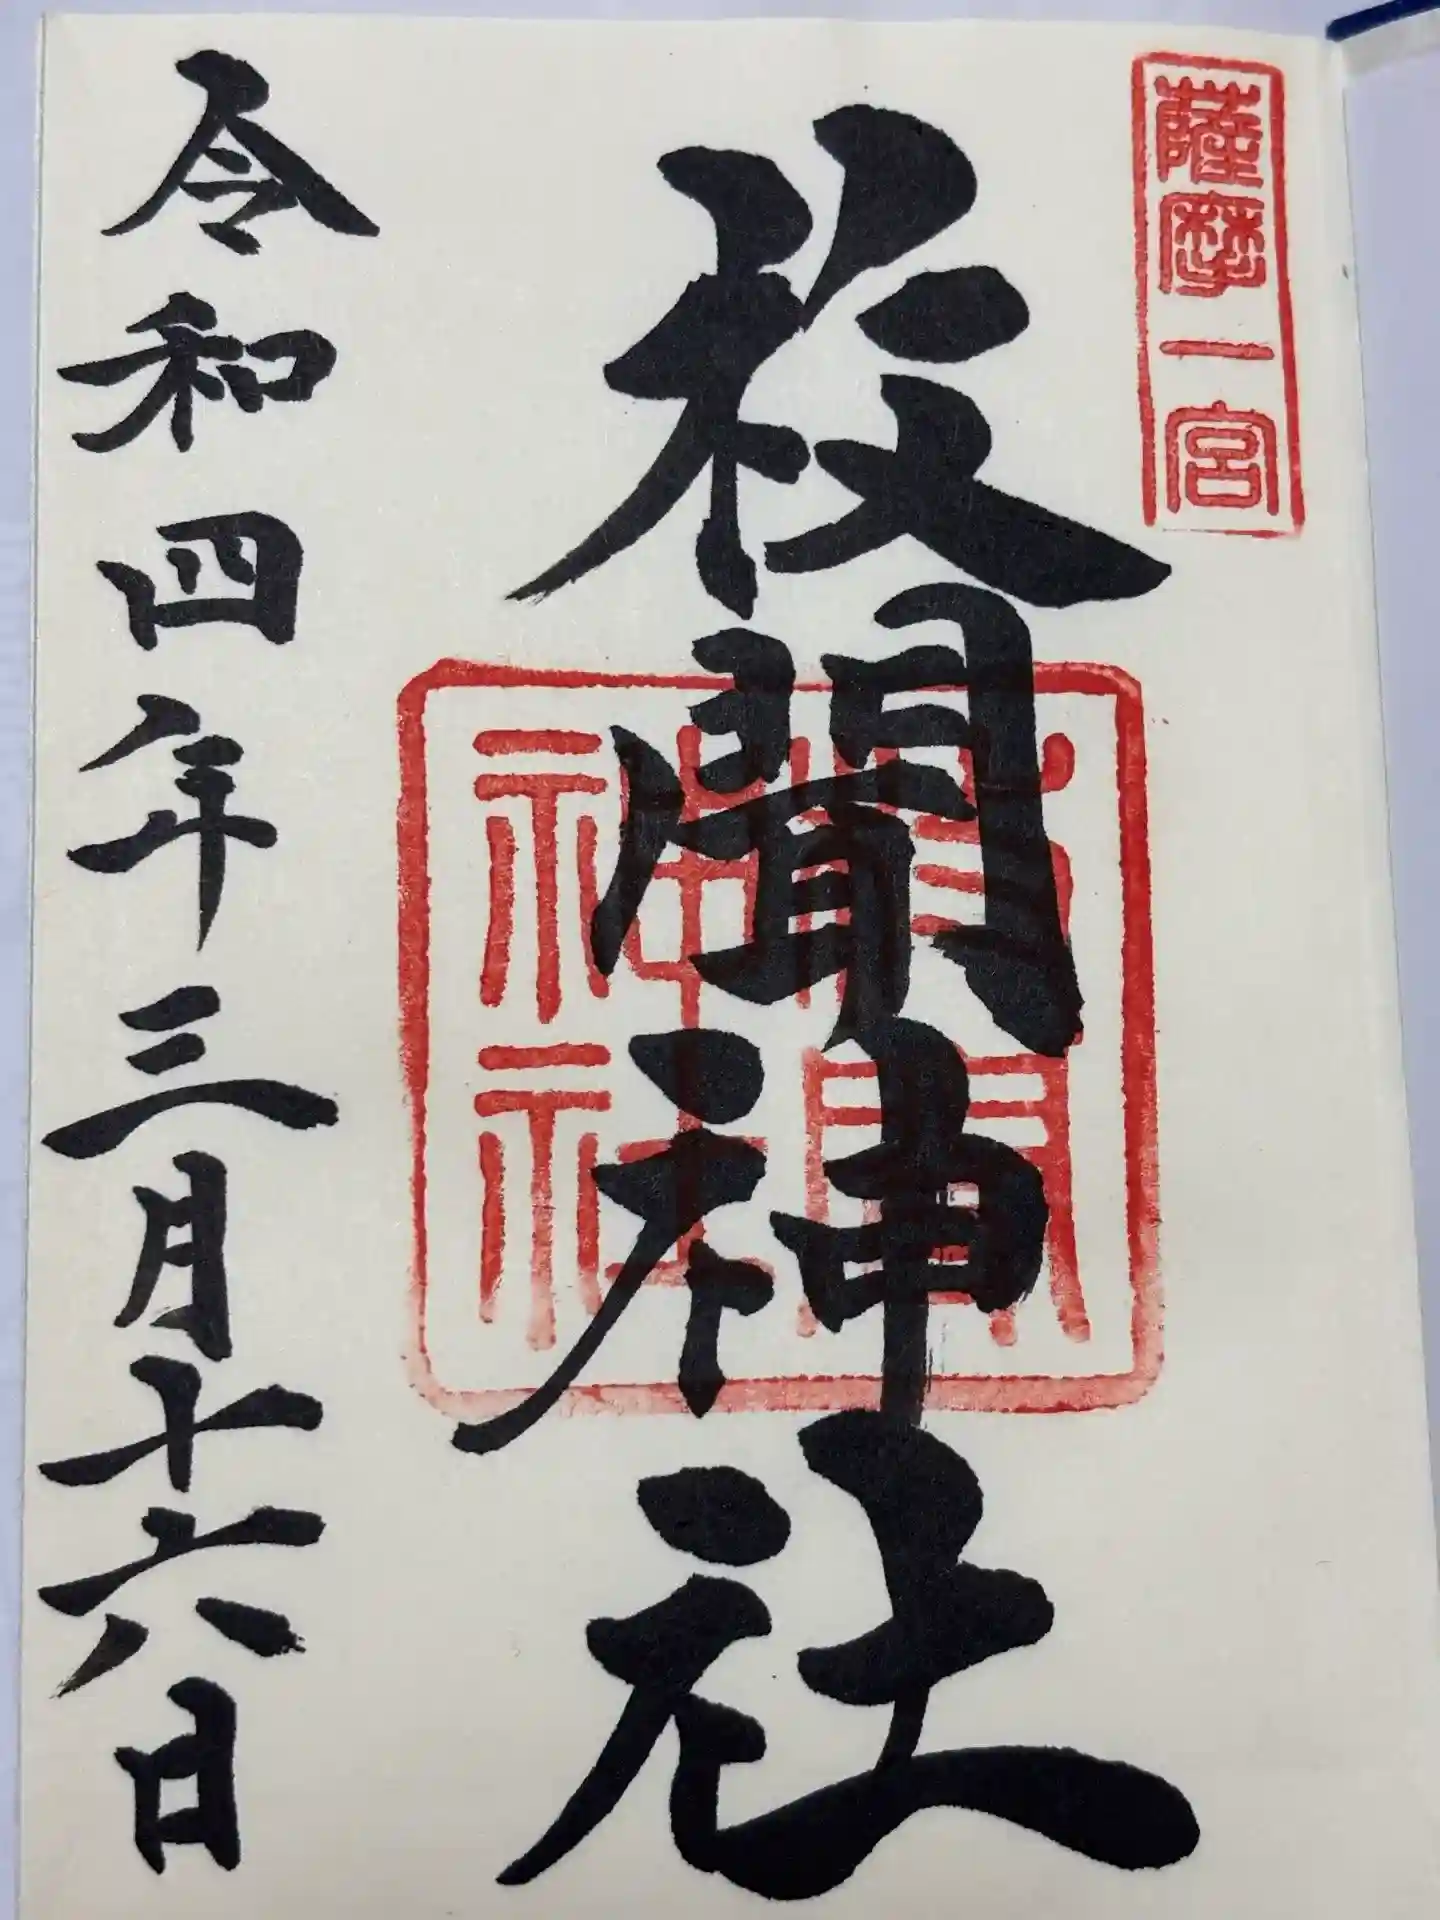 薩摩一宮
枚聞神社
枚聞神社
令和四年三月十六日